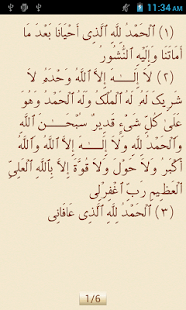 11:34 AM
(١) ٱلْحَمْدُ لِلَّهِ ٱلَّذِى أَحْيَانَا بَعْدَ مَا
أَمَاتَنَا وَإِلَيْهِ ٱلنُّشُور
(٢) لَا إِلَـٰهَ إِلَّا ٱللَّهُ وَحْدَهُ لَا
شَرِيكَ لَهُ لَهُ ٱلْمُلْكُ وَلَهُ ٱلْحَمْدُ وَهُوَ
عَلَىٰ كُلِّ شَىْءٍ قَدِيرٌ سُبْحَـٰنَ ٱللَّهِ
وَٱلْحَمْدُ لِلَّهِ وَلَا إِلَـٰهَ إِلَّا ٱللَّهُ وَٱللَّهُ
أَكْبَرُ وَلَا حَوْلَ وَلَا قُوَّةَ إِلَّا بِٱللَّهِ ٱلْعَلِىِّ
ٱلْعَظِيمِ رَبِّ ٱغْفِرْلِى
(٣) ٱلْحَمْدُ لِلَّهِ ٱلَّذِى عَافَانِى
1/6